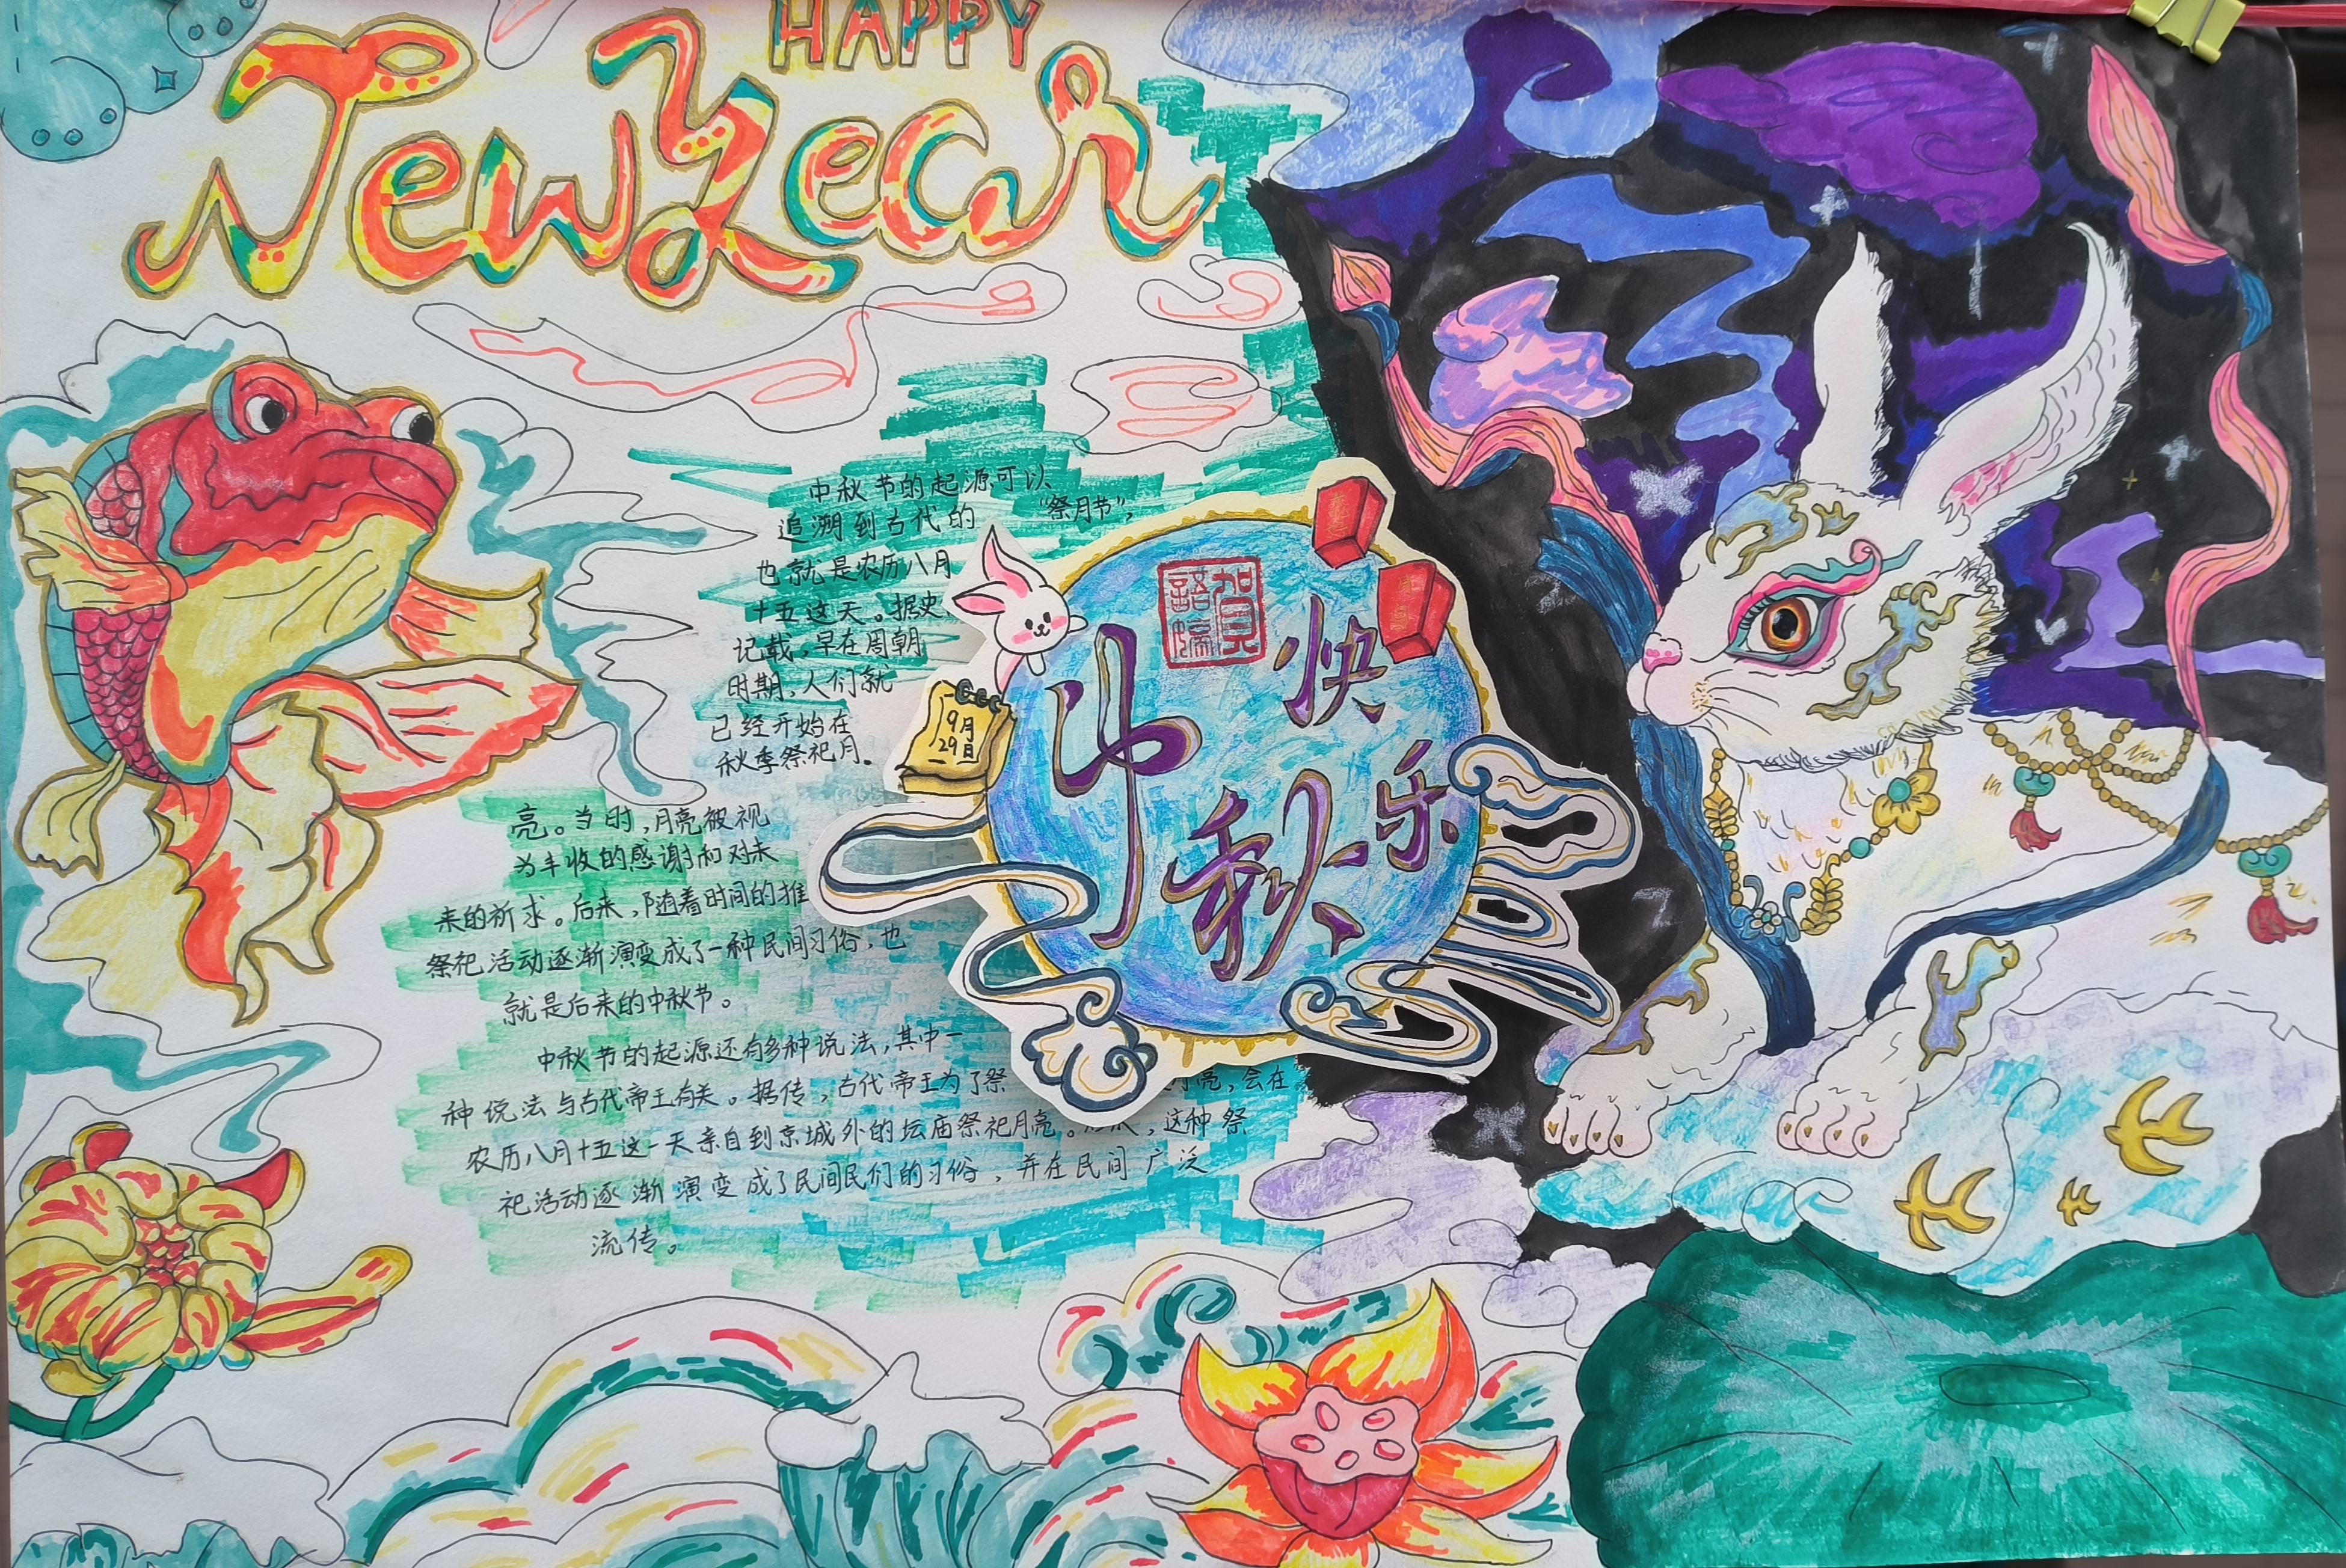 HAPPY
New Year
中秋节的起源可以
追溯到古代的“祭月节”，
也就是农历八月
十五这天。据史
记载，早在周朝
时期，人们就
已经开始在
秋季祭祀月
亮。当时，月亮被视
为丰收的感谢和对未
来的祈求。后来，随着时间的推
祭祀活动逐渐演变成了一种民间习俗，也
就是后来的中秋节。
中秋节的起源还有多种说法，其中一
种说法与古代帝王有关。据传，古代帝王为了祭 月亮，会在
农历八月十五这一天亲自到京城外的坛庙祭祀月亮。 这种祭
祀活动逐渐演变成了民间民们的习俗，并在民间广泛
流传。
9月
29日
中秋
快乐